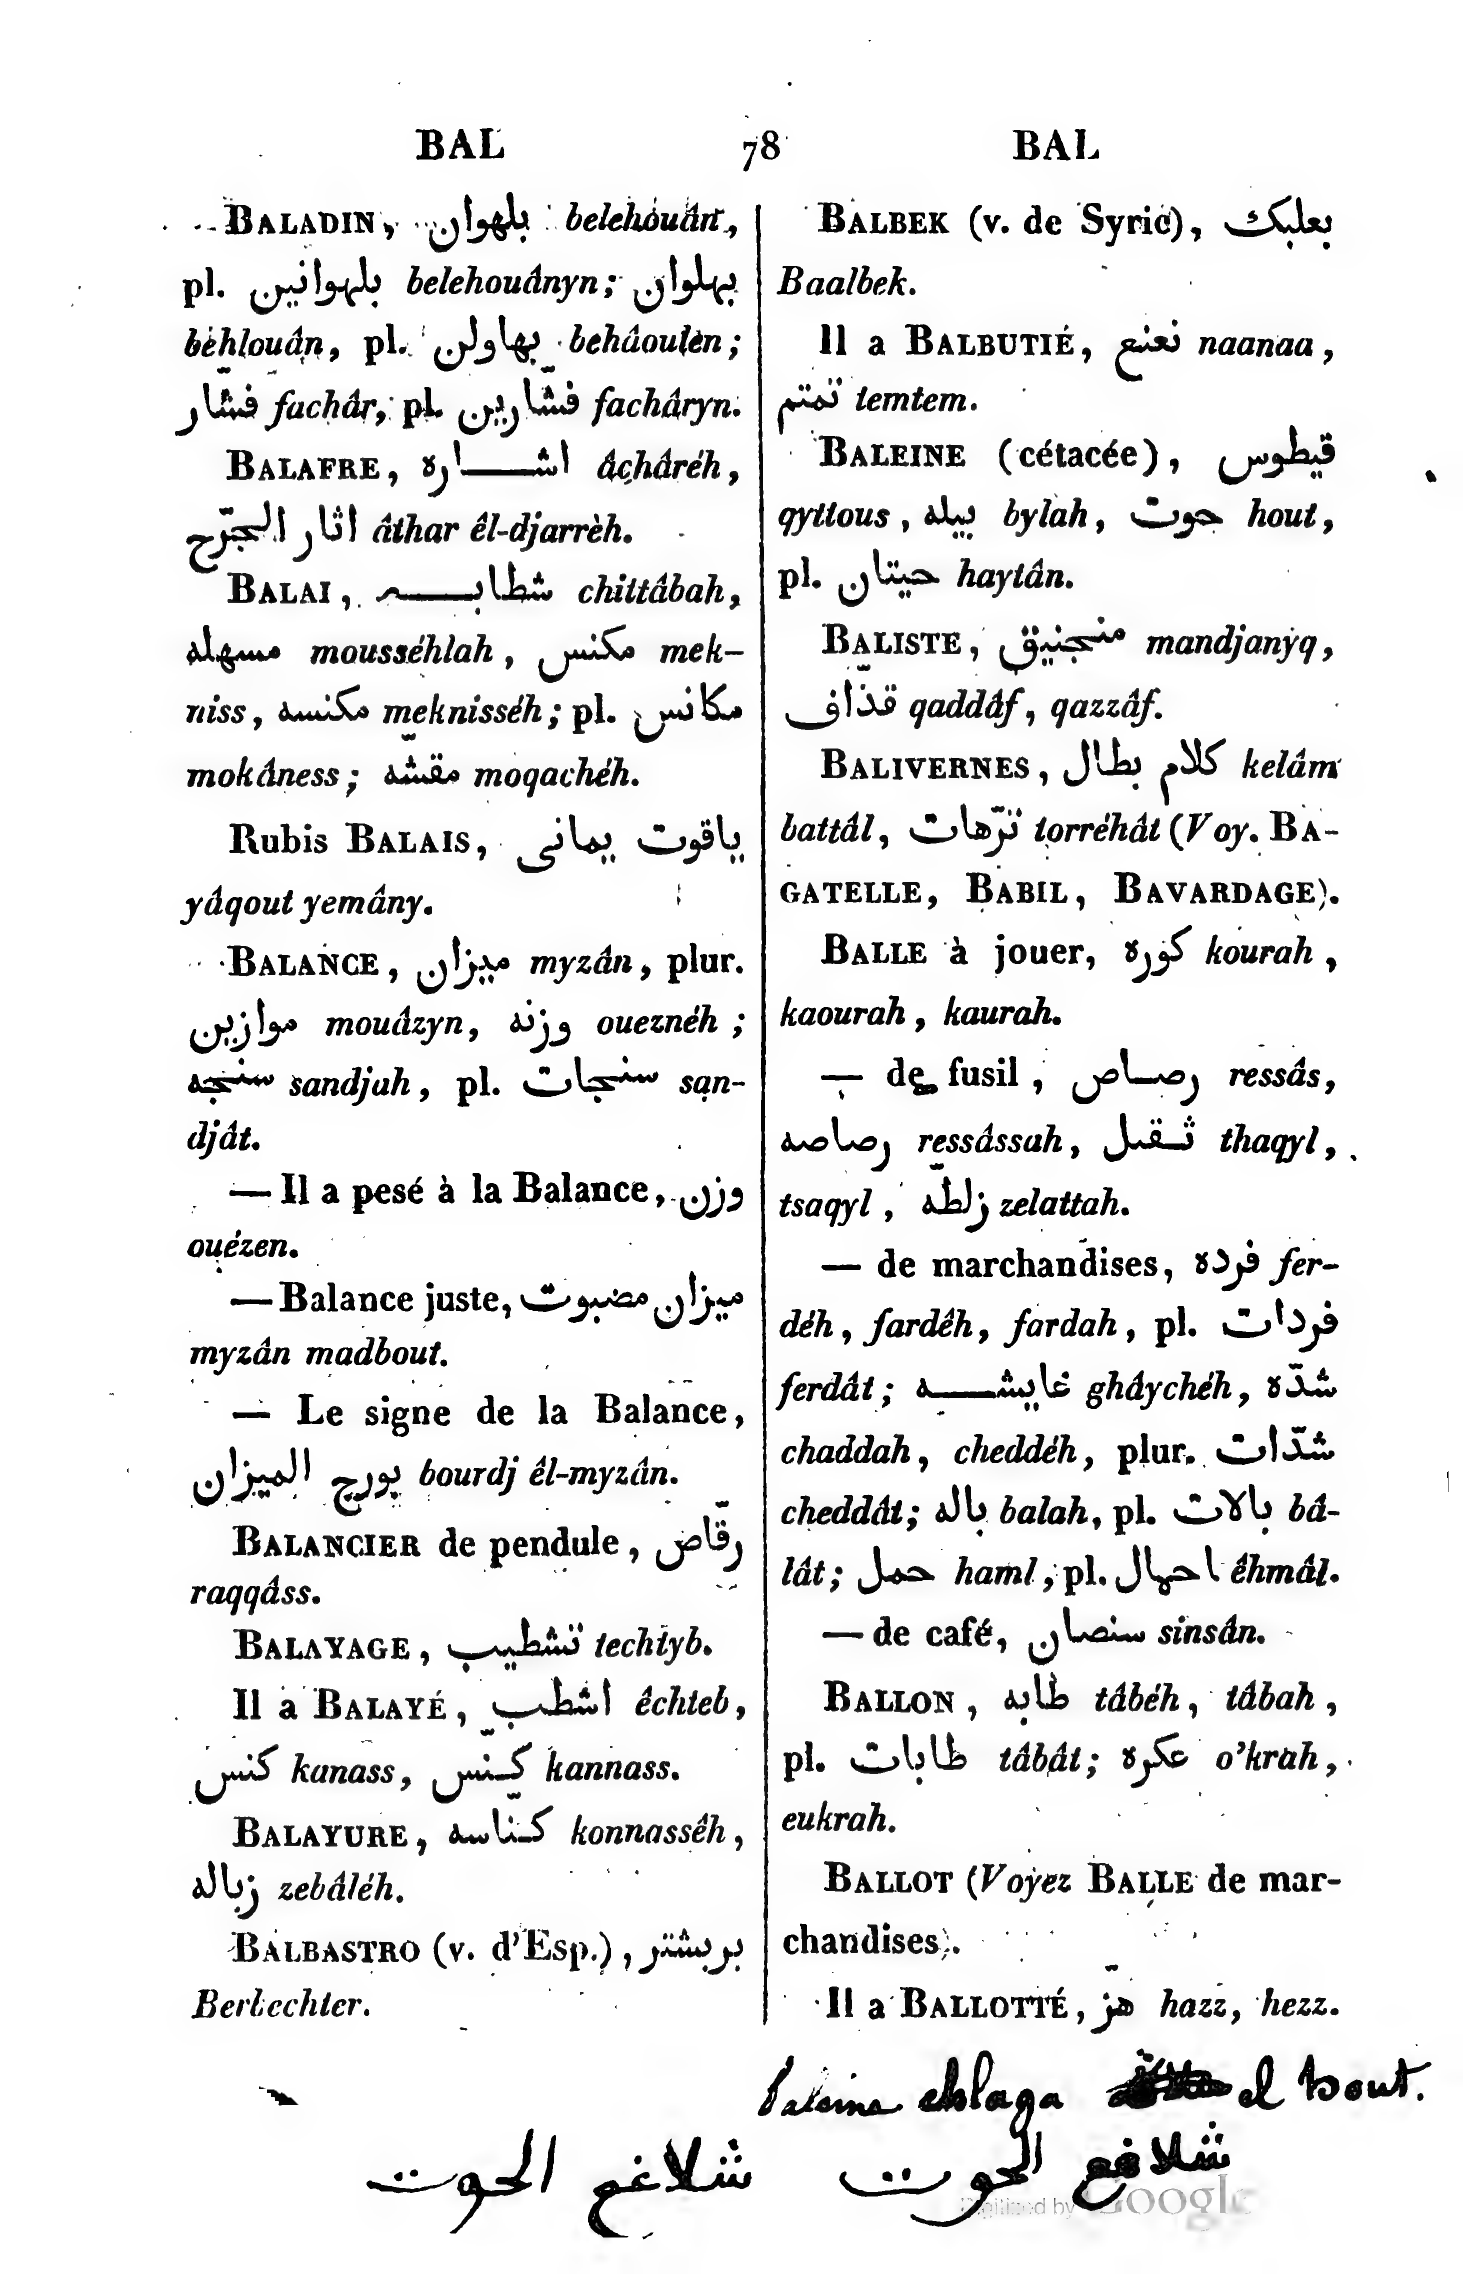 BAL 78 BAL
BALADIN, بلهوان belehouân,
pl. بلهوانين belehouânyn; بهلوان
behlouân, pl. بهاولن behâoulèn;
فشّار fachâr, pl. فشّارين fachâryn.
BALAFRE, اشاره âchâréh,
اثار الجرّح âthar êl-djarrèh.
BALAI, شطابه chittâbah,
مسهله mousséhlah, مكنس mek-
niss, مكنسه meknisséh; pl. مكانس
mokâness; مقشه moqachéh.
Rubis BALAIS, ياقوت يمانى
yâqout yemâny.
BALANCE, ميزان myzân, plur.
موازين mouâzyn, وزنه oueznéh;
سنجه sandjah, pl. سنجات san-
djât.
— Il a pesé à la Balance, وزن
ouézen.
— Balance juste, ميزان مضبوت
myzân madbout.
— Le signe de la Balance,
بورج الميزان bourdj êl-myzân.
BALANCIER de pendule, رقّاض
raqqâss.
BALAYAGE, تشطيب techtyb.
Il a BALAYÉ, اشطب êchteb,
كنس kanass, كنّس kannass.
BALAYURE, كناسه konnassêh,
زباله zebâléh.
BALBASTRO (v. d'Esp.), بربشتر
Berbechter.
BALBEK (v. de Syrie), بعلبك
Baalbek.
Il a BALBUTIÉ, نعنع naanaa,
تمتم temtem.
BALEINE (cétacée), قيطوس
qyttous, بيله bylah, حوت hout,
pl. حيتان haytân.
BALISTE, منجنيق mandjanyq,
قذّاف qaddâf, qazzâf.
BALIVERNES, كلام بطال kelâm
battâl, ترّهات torréhât (Voy. BA-
GATELLE, BABIL, BAVARDAGE).
BALLE à jouer, كوره kourah,
kaourah, kaurah.
— de fusil, رصاص ressâs,
رصاصه ressâssah, ثقيل thaqyl,
tsaqyl, زلطّه zelattah.
— de marchandises, فرده fer-
déh, fardêh, fardah, pl. فردات
ferdât; غايشه ghâychéh, شدّه
chaddah, cheddéh, plur. شدّات
cheddât; باله balah, pl. بالات bâ-
lât; حمل haml, pl. احمال êhmâl.
— de café, سنصان sinsân.
BALLON, طابه tâbéh, tâbah,
pl. طابات tâbât; عكره o'krah,
eukrah.
BALLOT (Voyez BALLE de mar-
chandises).
Il a BALLOTTÉ, هزّ hazz, hezz.
baleine chlaga el hout.
شلاغم الحوت شلاغم الحوت
Digitized by Google